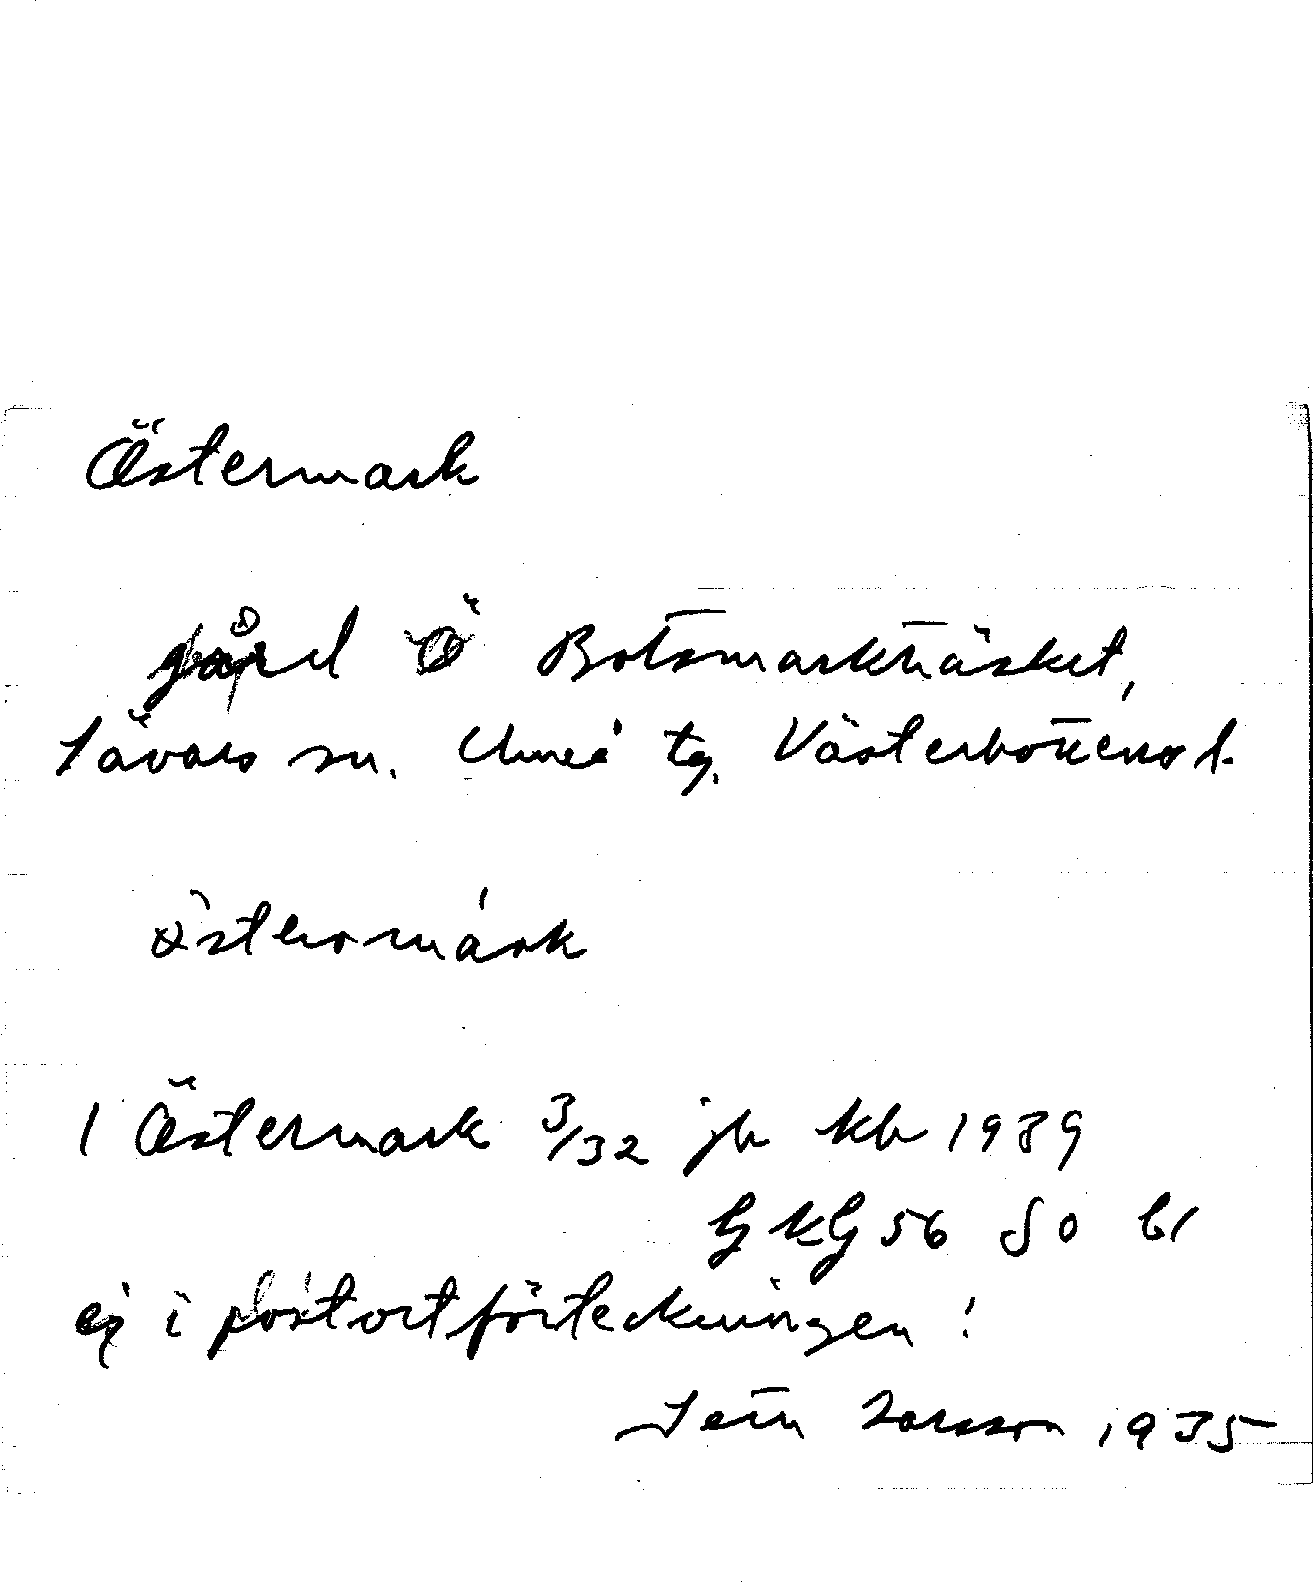 Östermark
gård Ö Botsmarkträsket,
Sävars sn. Umeå tg. Västerbottens l.
östermark
1 Östermark 3/32 jb kb 1939
GKG 56 SO b1
ej i postortförteckningen!
Larsson 1935